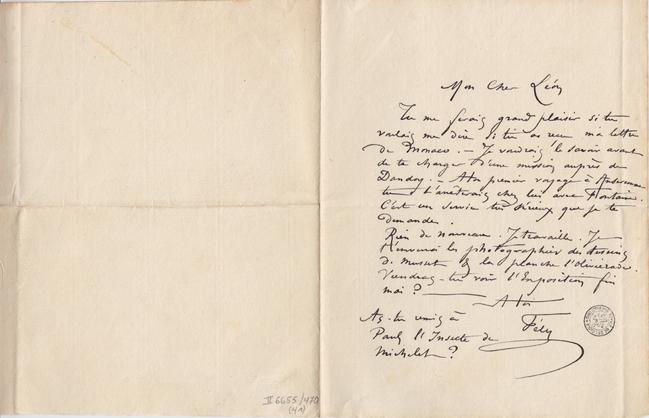 Mon Cher Léon
Tu me ferais grand plaisir si tu
voulais me dire si tu as reçu ma lettre
de Monaco. — Je voudrais le savoir avant
de te charger d'une mission auprès de
Dandoy. — A ton premier voyage à
tu t'arrêterais chez lui avec Fontaine.
C'est un service très sérieux que je te
demande.
Rien de nouveau. Je travaille. Je
t'enverrai les photographies des dessins
de Musset & la planche l'Oliviérade.
Viendras-tu voir l'Exposition fin
mai ?
A toi
Fély
As-tu remis à
Paul l'Insecte de
Michelet ?
II 6655/470
(4A)